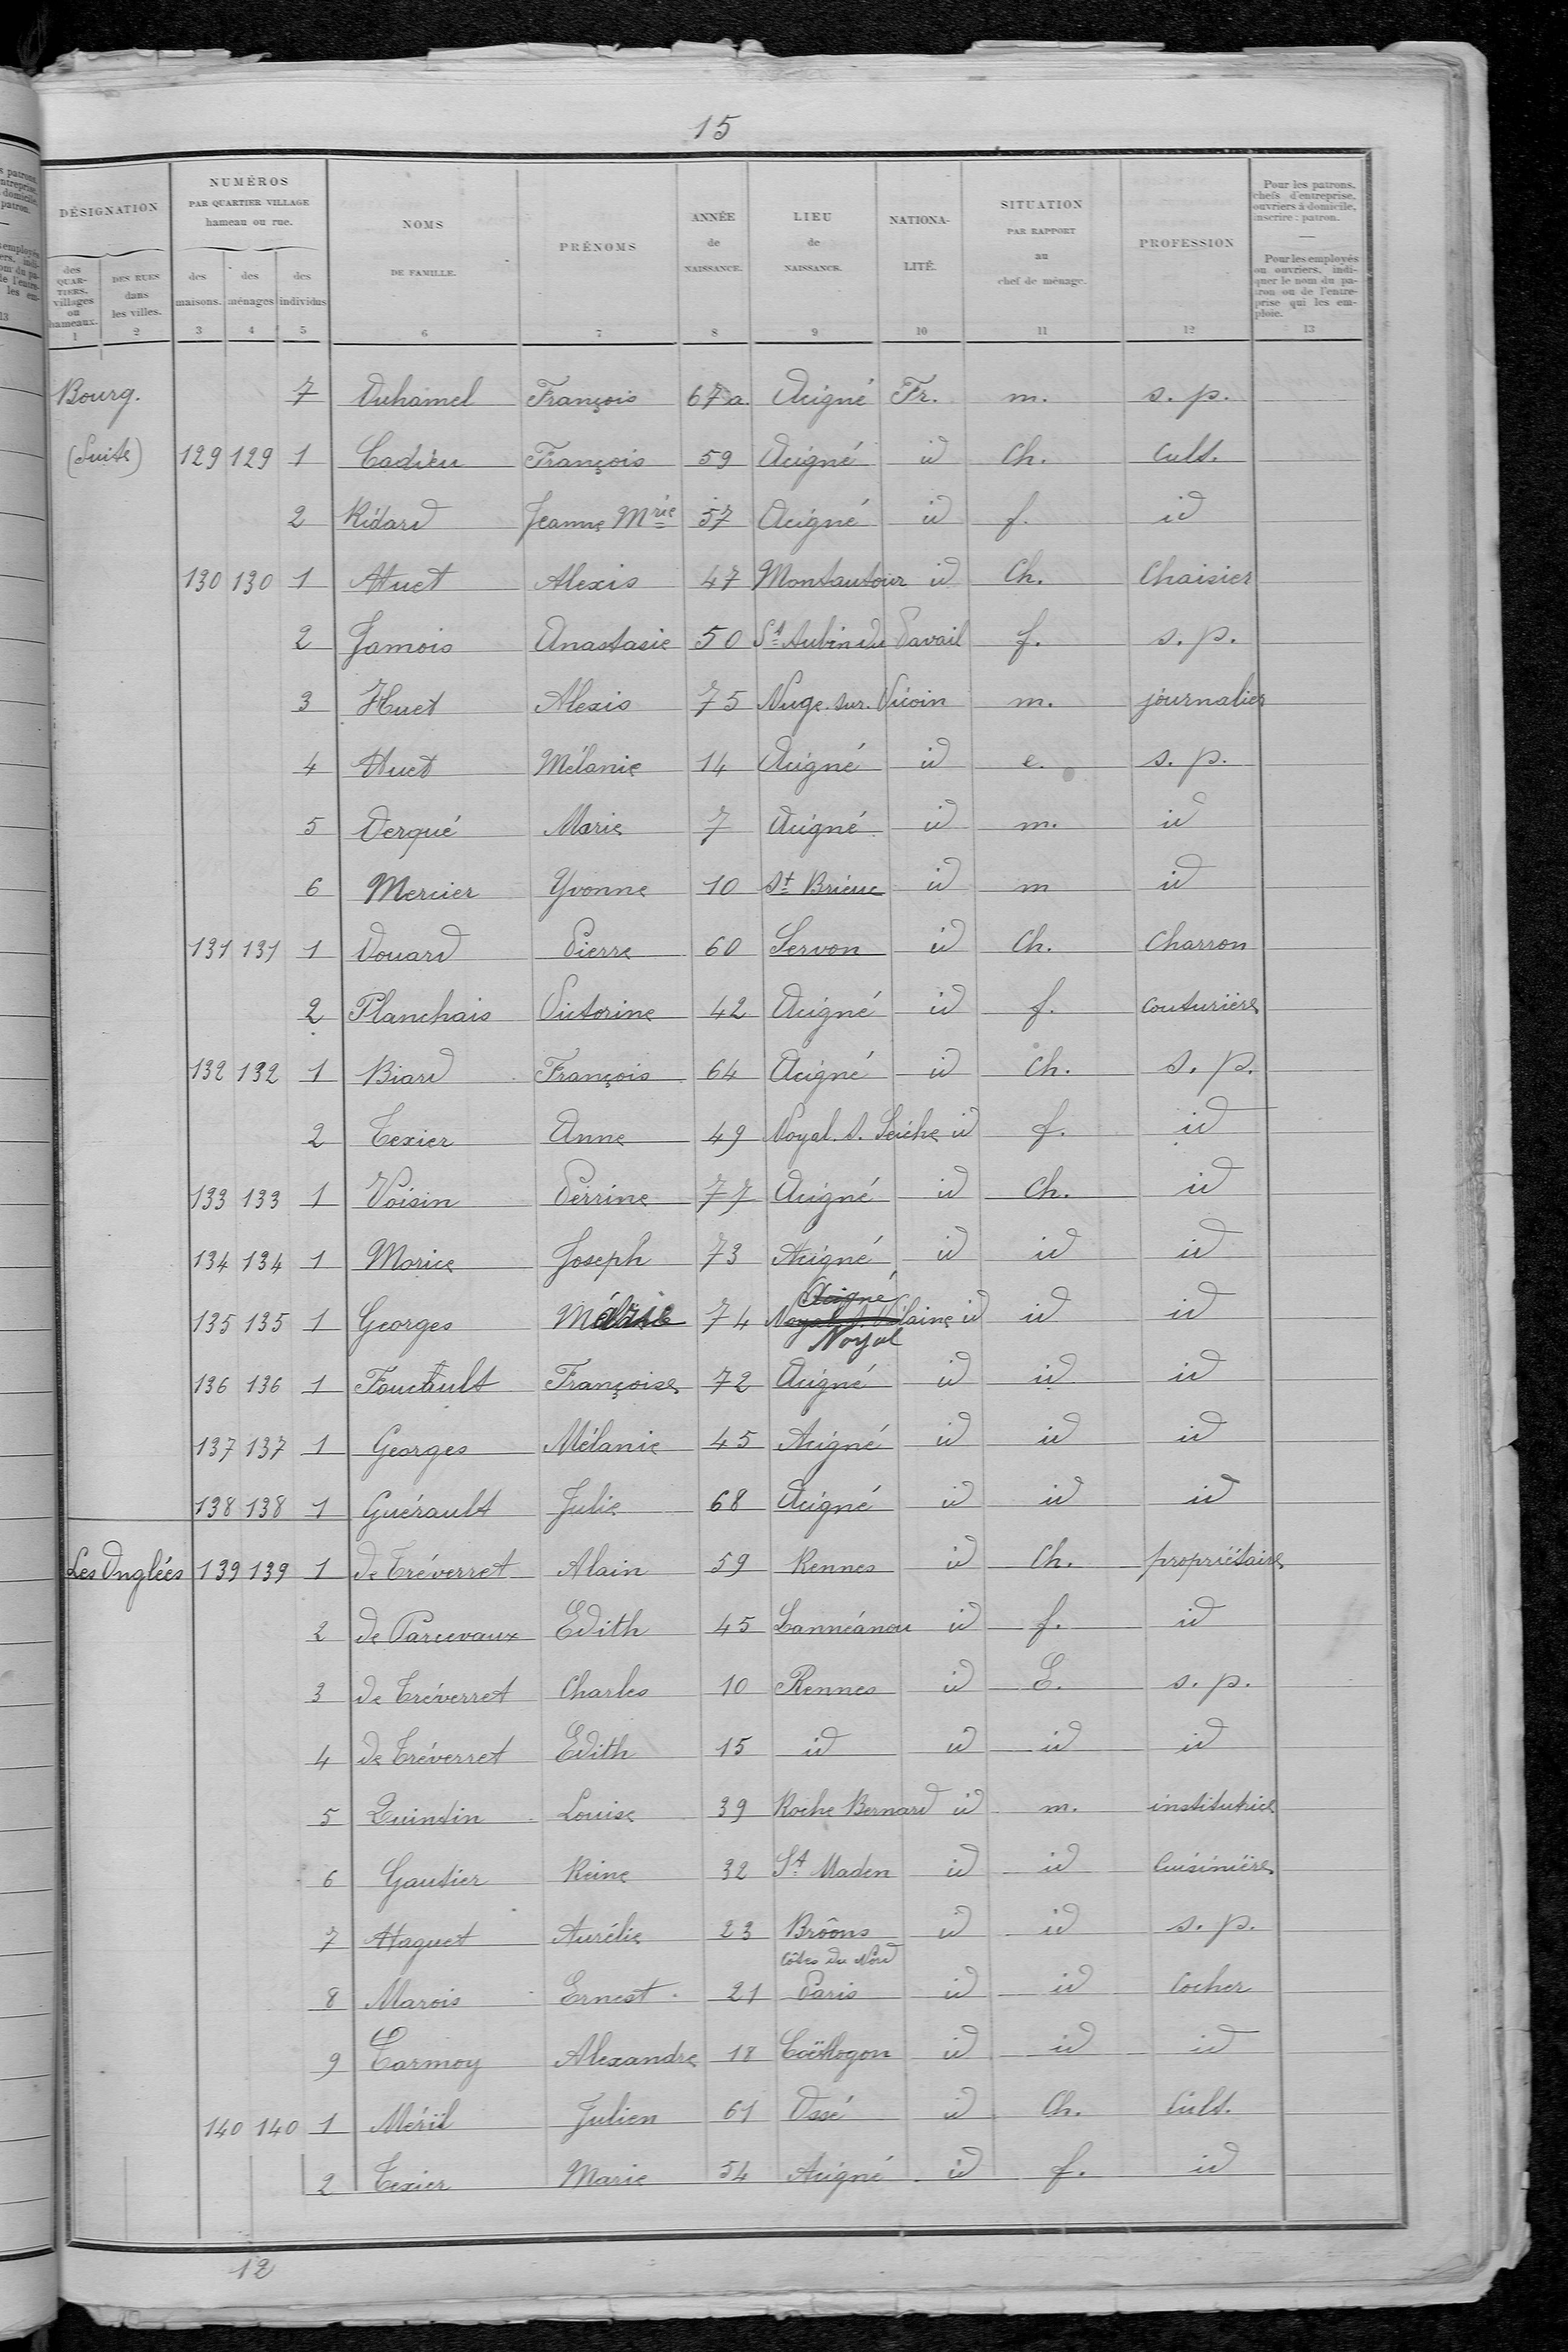 15
DÉSIGNATION
NUMÉROS
PAR QUARTIER VILLAGE
hameau ou rue.
NOMS
DE FAMILLE.
PRÉNOMS
ANNÉE
de
NAISSANCE.
LIEU
de
NAISSANCE.
NATIONA-
LITÉ.
SITUATION
PAR RAPPORT
au
chef de ménage.
PROFESSION
Pour les patrons,
chefs d'entreprise,
ouvriers à domicile,
inscrire : patron.
Pour les employés
ou ouvriers, indi-
quer le nom du pa-
tron ou de l'entre-
prise qui les em-
ploie.
des
QUAR-
TIERS,
villages
ou
hameaux.
DES RUES
dans
les villes.
des
maisons.
des
ménages
des
individus
1 2 3 4 5 6 7 8 9 10 11 12 13
Bourg. 7 Duhamel François 67 a. Acigné Fr. m. s. p.
(Suite) 129 129 1 Cadieu François 59 Acigné id Ch. Cult.
2 Ridard Jeanne Mrie 57 Acigné id f. id
130 130 1 Huet Alexis 47 Montautour id Ch. Chaisier
2 Jamois Anastasie 50 St Aubin du Pavail f. s. p.
3 Huet Alexis 75 Nuge. sur. Vicoin m. journalier
4 Huet Mélanie 14 Acigné id e. s. p.
5 Derqué Marie 7 Acigné id m. id
6 Mercier Yvonne 10 St Brieuc id m id
131 131 1 Douard Pierre 60 Servon id Ch. Charron
2 Planchais Victorine 42 Acigné id f. couturière
132 132 1 Biard François 64 Acigné id Ch. s. p.
2 Texier Anne 49 Noyal. s. Seiche id f. id
133 133 1 Voisin Perrine 77 Acigné id Ch. id
134 134 1 Morice Joseph 73 Acigné id id id
Acigné
135 135 1 Georges Marie 74 Noyal. s. Vilaine id id id
Noyal
136 136 1 Foucault Françoise 72 Acigné id id id
137 137 1 Georges Mélanie 45 Acigné id id id
138 138 1 Guérault Julie 68 Acigné id id id
Les Onglées 139 139 1 de Tréverret Alain 59 Rennes id Ch. propriétaire
2 de Parcevaux Edith 45 Lannéanou id f. id
3 de Tréverret Charles 10 Rennes id E. s. p.
4 de Tréverret Edith 15 id id id id
5 Quintin Louise 39 Roche Bernard id m. institutrice
6 Gautier Reine 32 St Maden id id Cuisinière
7 Haguet Aurélie 23 Brôons id id s. p.
Côtes du Nord
8 Marois Ernest 21 Paris id id Cocher
9 Tarmoy Alexandre 18 Coëtlogon id id id
140 140 1 Méril Julien 61 Ossé id Ch. Cult.
2 Texier Marie 54 Acigné id f. id
12